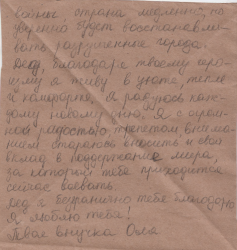 страна медленно, но
уверенно будет восстанавли-
вать разрушенные города.
Дед, благодаря твоему
я живу в уюте, тепле
и комфорте. Я радуюсь каж-
дому новому дню. Я с огром-
ной радостью, трепетом, внима-
нием стараюсь вносить и свой
вклад в поддержание мира,
за который тебе приходится
сейчас воевать.
Дед я безгранично тебе благодарна
Я люблю тебя!
Твоя внучка Оля